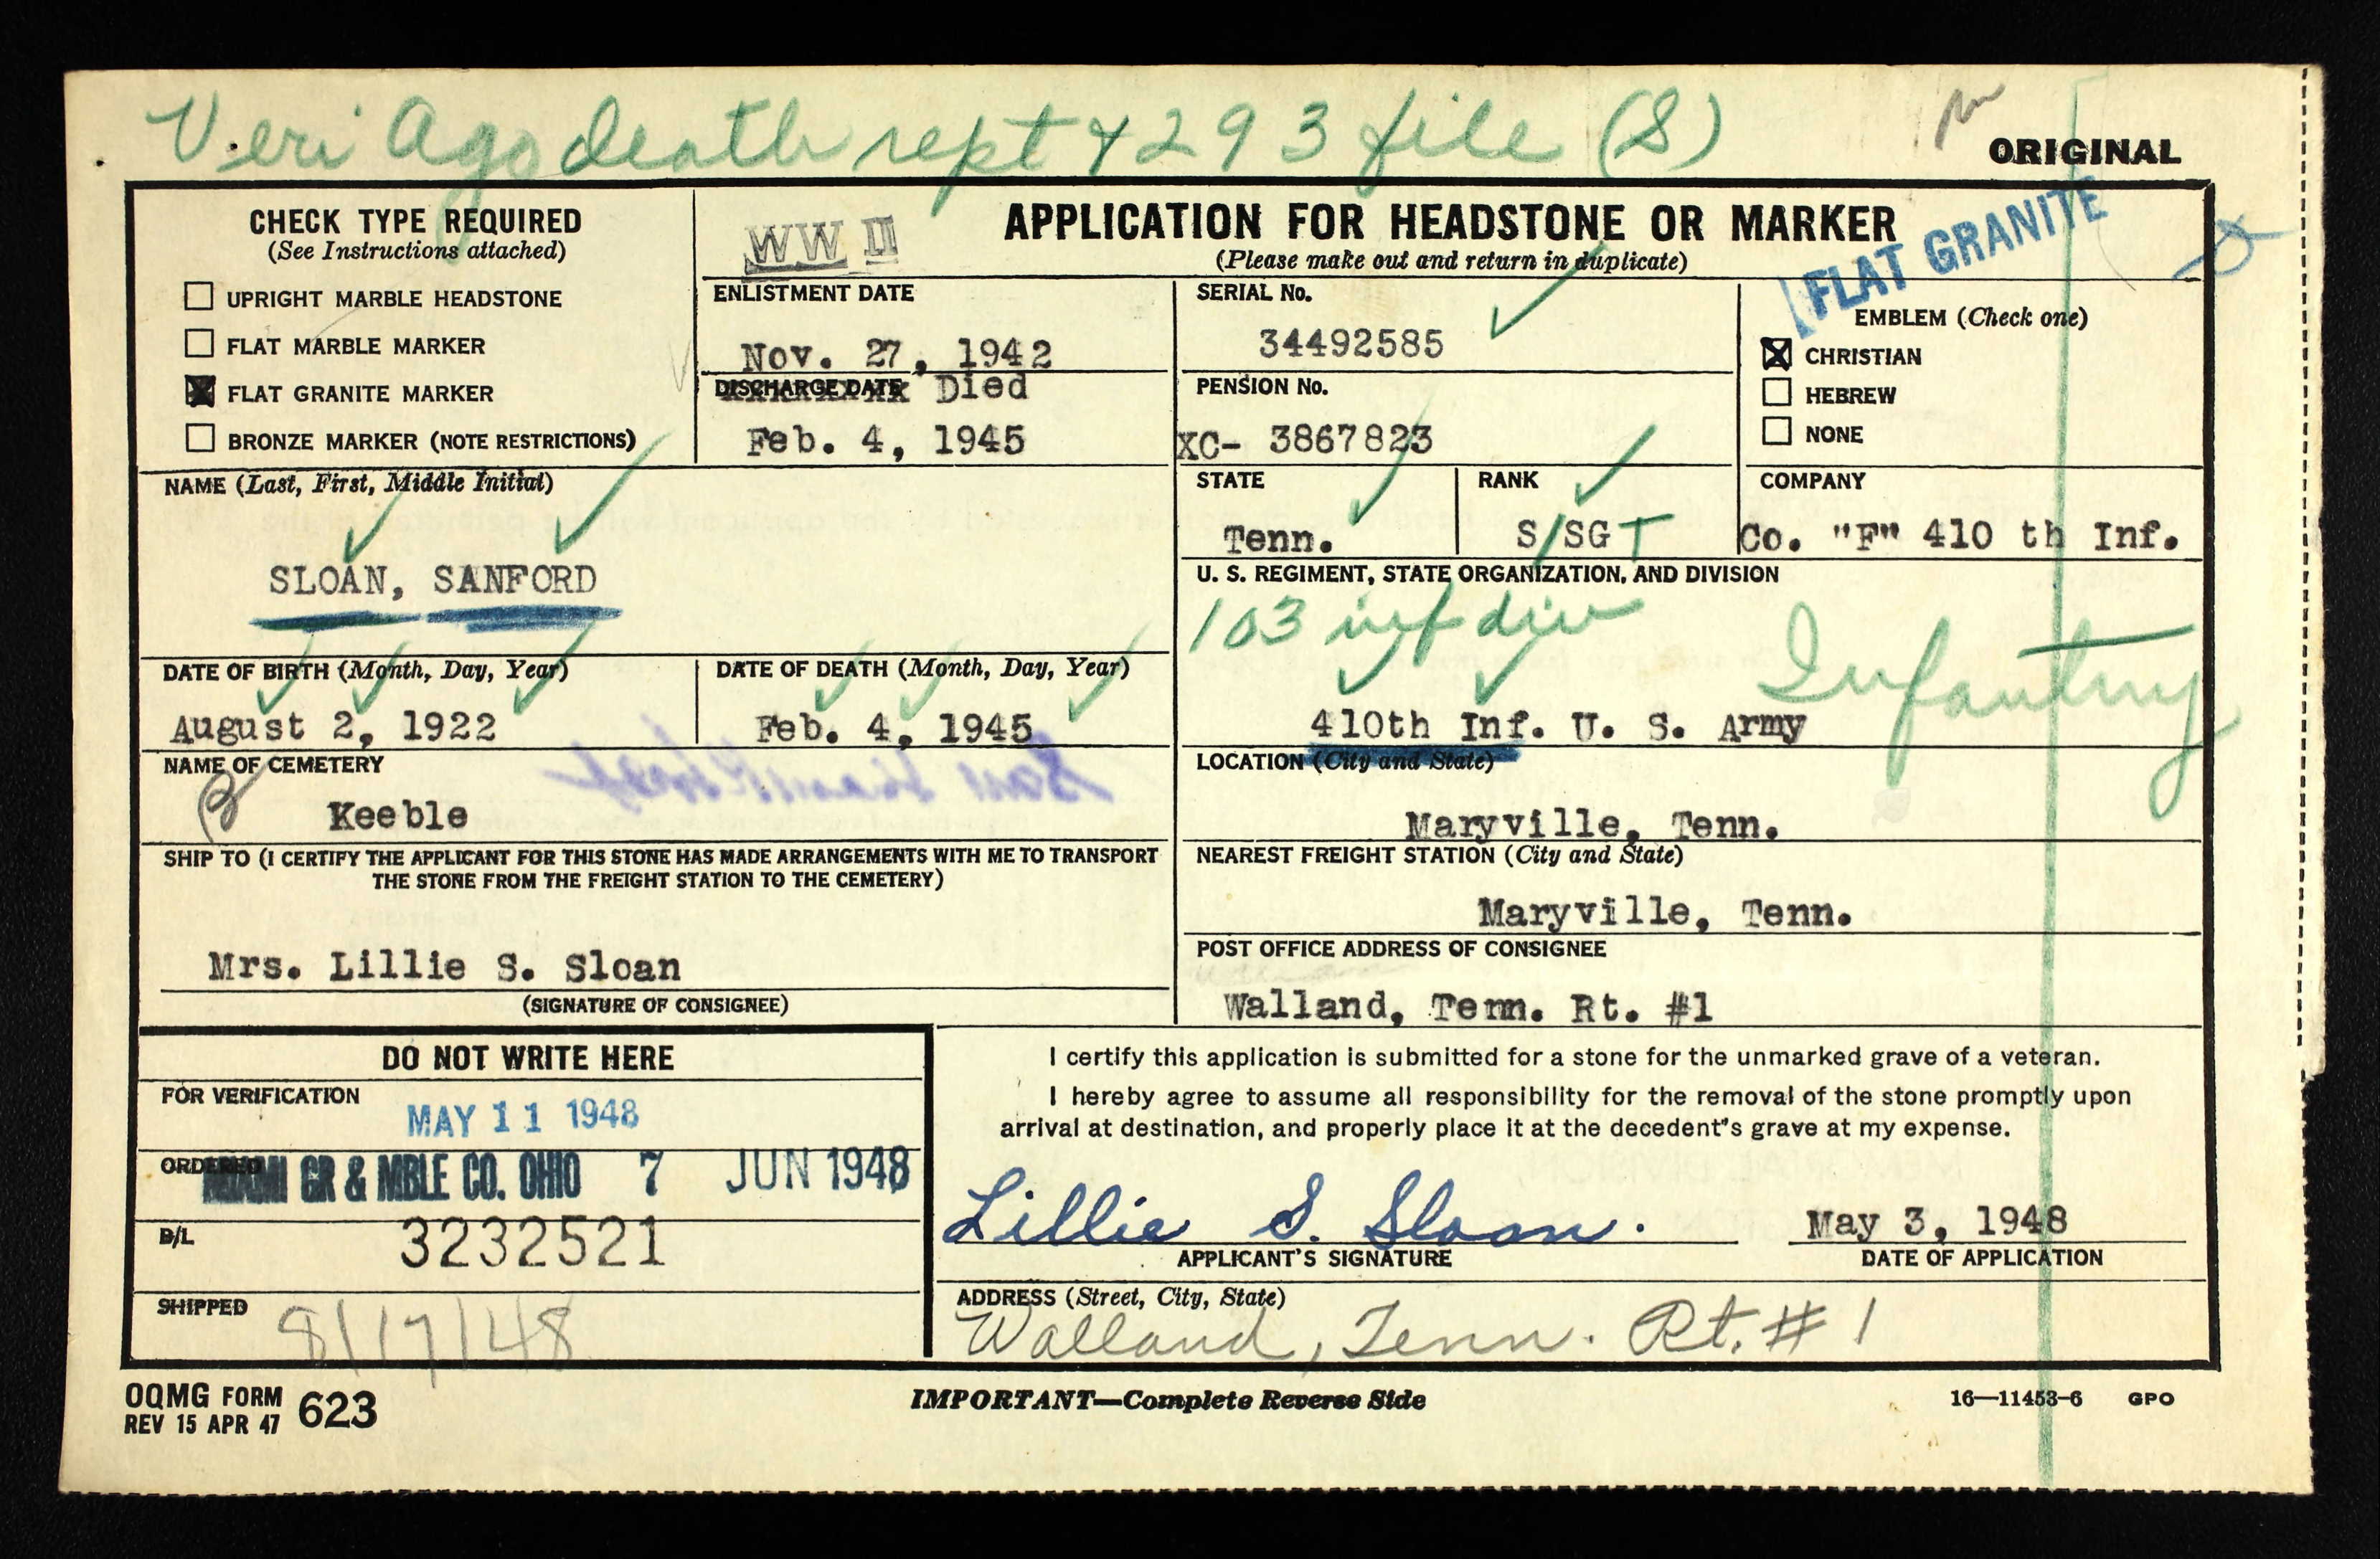 Veri Ago death rept 4293 file (S)
ORIGINAL
CHECK TYPE REQUIRED
(See Instructions attached)
UPRIGHT MARBLE HEADSTONE
FLAT MARBLE MARKER
FLAT GRANITE MARKER
BRONZE MARKER (NOTE RESTRICTIONS)
WW II
APPLICATION FOR HEADSTONE OR MARKER
(Please make out and return in duplicate)
FLAT GRANITE
ENLISTMENT DATE
Nov. 27, 1942
DISCHARGE DATE Died
Feb. 4, 1945
SERIAL No.
34492585
PENSION No.
XC- 3867823
EMBLEM (Check one)
CHRISTIAN
HEBREW
NONE
NAME (Last, First, Middle Initial)
SLOAN, SANFORD
STATE
Tenn.
RANK
S/SGT
COMPANY
Co. "F" 410 th Inf.
U. S. REGIMENT, STATE ORGANIZATION, AND DIVISION
103 inf div
Infantry
410th Inf. U. S. Army
DATE OF BIRTH (Month, Day, Year)
August 2, 1922
DATE OF DEATH (Month, Day, Year)
Feb. 4, 1945
NAME OF CEMETERY
Keeble
LOCATION (City and State)
Maryville, Tenn.
SHIP TO (I CERTIFY THE APPLICANT FOR THIS STONE HAS MADE ARRANGEMENTS WITH ME TO TRANSPORT
THE STONE FROM THE FREIGHT STATION TO THE CEMETERY)
Mrs. Lillie S. Sloan
(SIGNATURE OF CONSIGNEE)
NEAREST FREIGHT STATION (City and State)
Maryville, Tenn.
POST OFFICE ADDRESS OF CONSIGNEE
Walland, Tenn. Rt. #1
DO NOT WRITE HERE
FOR VERIFICATION
MAY 11 1948
ORDERED
MIAMI GR & MBLE CO. OHIO 7 JUN 1948
B/L
3232521
SHIPPED
8/17/48
I certify this application is submitted for a stone for the unmarked grave of a veteran.
I hereby agree to assume all responsibility for the removal of the stone promptly upon
arrival at destination, and properly place it at the decedent's grave at my expense.
Lillie S. Sloan.
APPLICANT'S SIGNATURE
May 3, 1948
DATE OF APPLICATION
ADDRESS (Street, City, State)
Walland, Tenn. Rt. # 1
OQMG FORM 623
REV 15 APR 47
IMPORTANT—Complete Reverse Side
16—11453-6 GPO